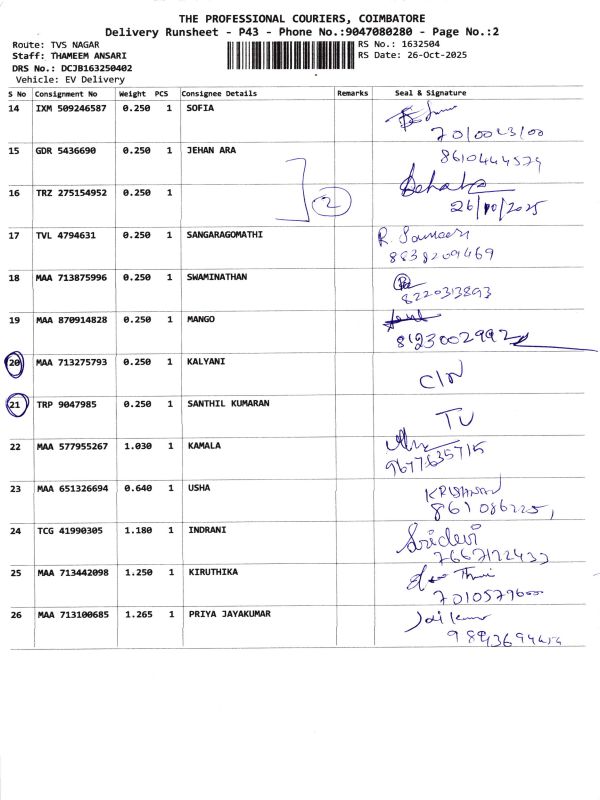 THE PROFESSIONAL COURIERS, COIMBATORE
Delivery Runsheet - P43 - Phone No.:9047080280 - Page No.:2
Route: TVS NAGAR
RS No.: 1632504
Staff: THAMEEM ANSARI
RS Date: 26-Oct-2025
DRS No.: DCJB163250402
Vehicle: EV Delivery
S No Consignment No Weight PCS Consignee Details Remarks Seal & Signature
14 IXM 509246587 0.250 1 SOFIA
15 GDR 5436690 0.250 1 JEHAN ARA
8610444579
16 TRZ 275154952 0.250 1
2
26/10/2025
17 TVL 4794631 0.250 1 SANGARAGOMATHI R.
8838209469
18 MAA 713875996 0.250 1 SWAMINATHAN
8220313893
19 MAA 870914828 0.250 1 MANGO
8123002992
20 MAA 713275793 0.250 1 KALYANI
21 TRP 9047985 0.250 1 SANTHIL KUMARAN
22 MAA 577955267 1.030 1 KAMALA
9677635715
23 MAA 651326694 0.640 1 USHA KRISHNAN
24 TCG 41990305 1.180 1 INDRANI Sridevi
25 MAA 713442098 1.250 1 KIRUTHIKA
26 MAA 713100685 1.265 1 PRIYA JAYAKUMAR